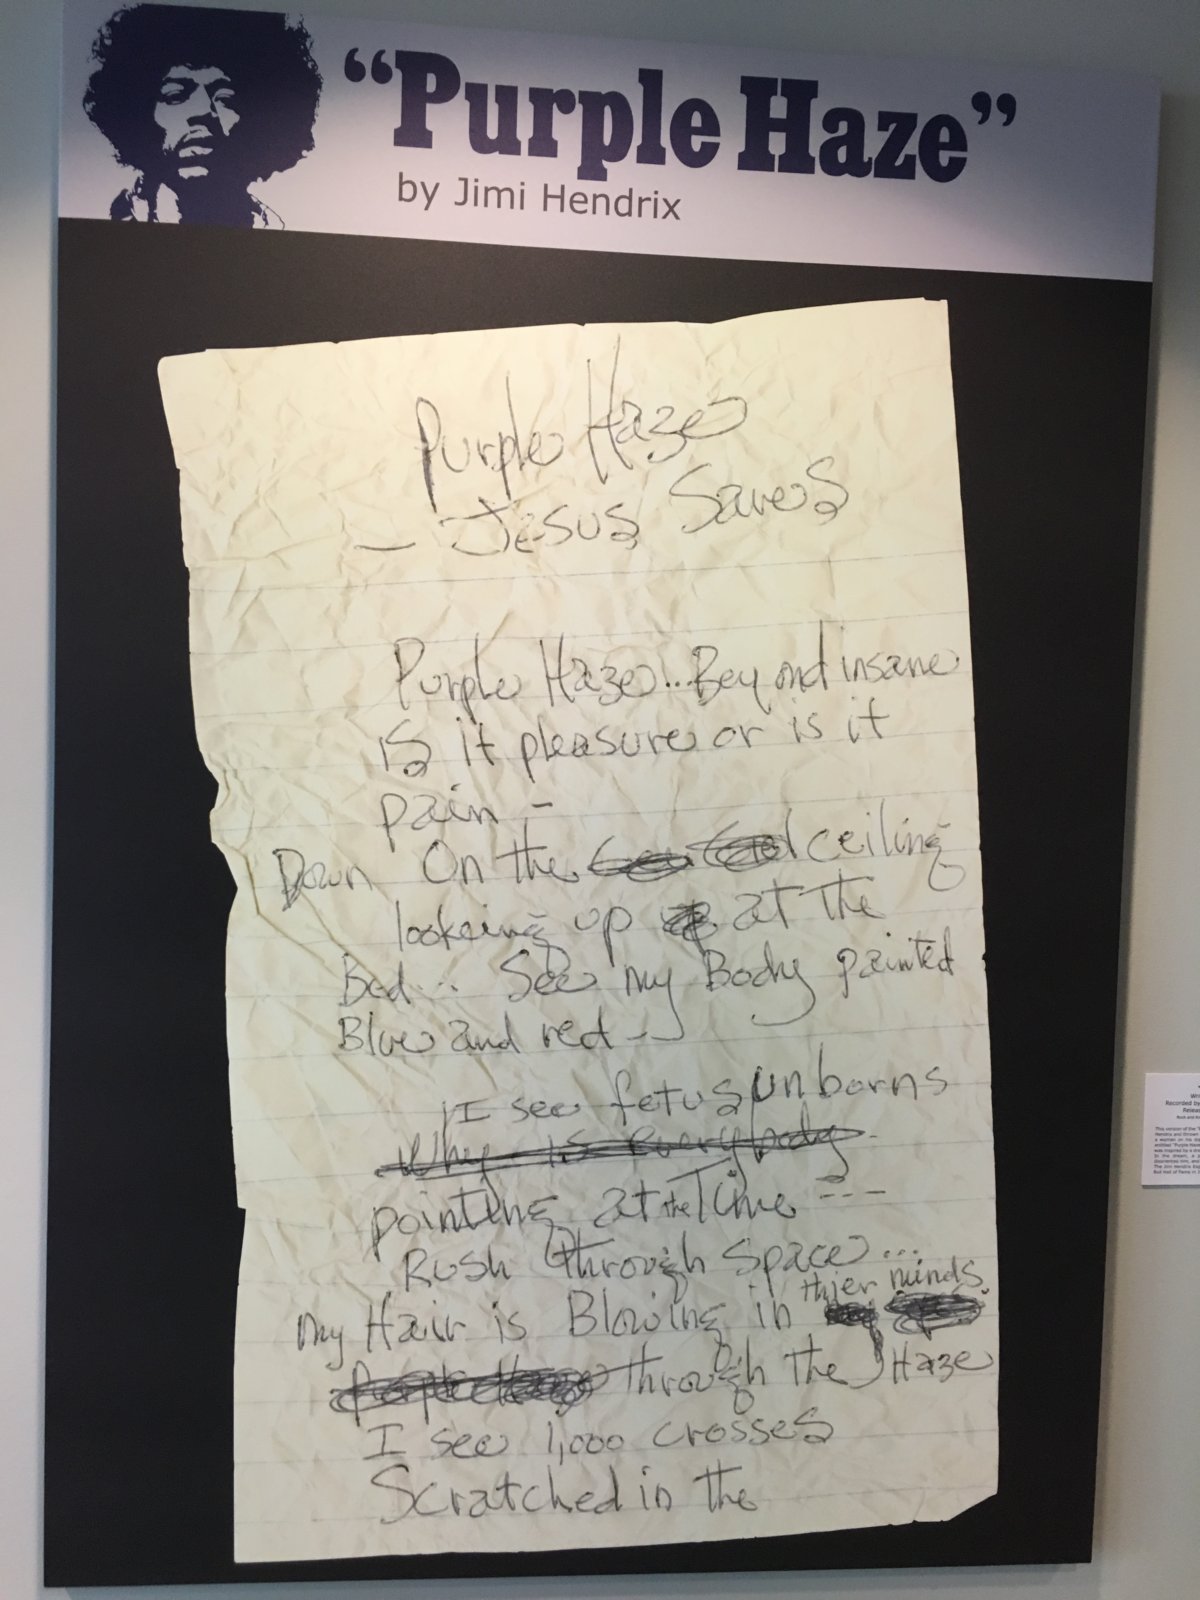 "Purple Haze"
by Jimi Hendrix
Purple Haze
- Jesus Saves
Purple Haze... Beyond insane
is it pleasure or is it
pain -
Down On the ceiling
lookeing up at the
Bed... See my Body painted
Blue and red --
I see fetus unborns
Why is everybody
pointing at the Time ---
Rush through space...
thier minds
my Hair is Blowing in
Purple Haze through the Haze
I see 1,000 crosses
Scratched in the
Recorded by
Hendrix and thrown
a woman on his
entitled "Purple Haze
was inspired by a dre
In the dream, a
The Jimi Hendrix Exp
Roll Hall of Fame in